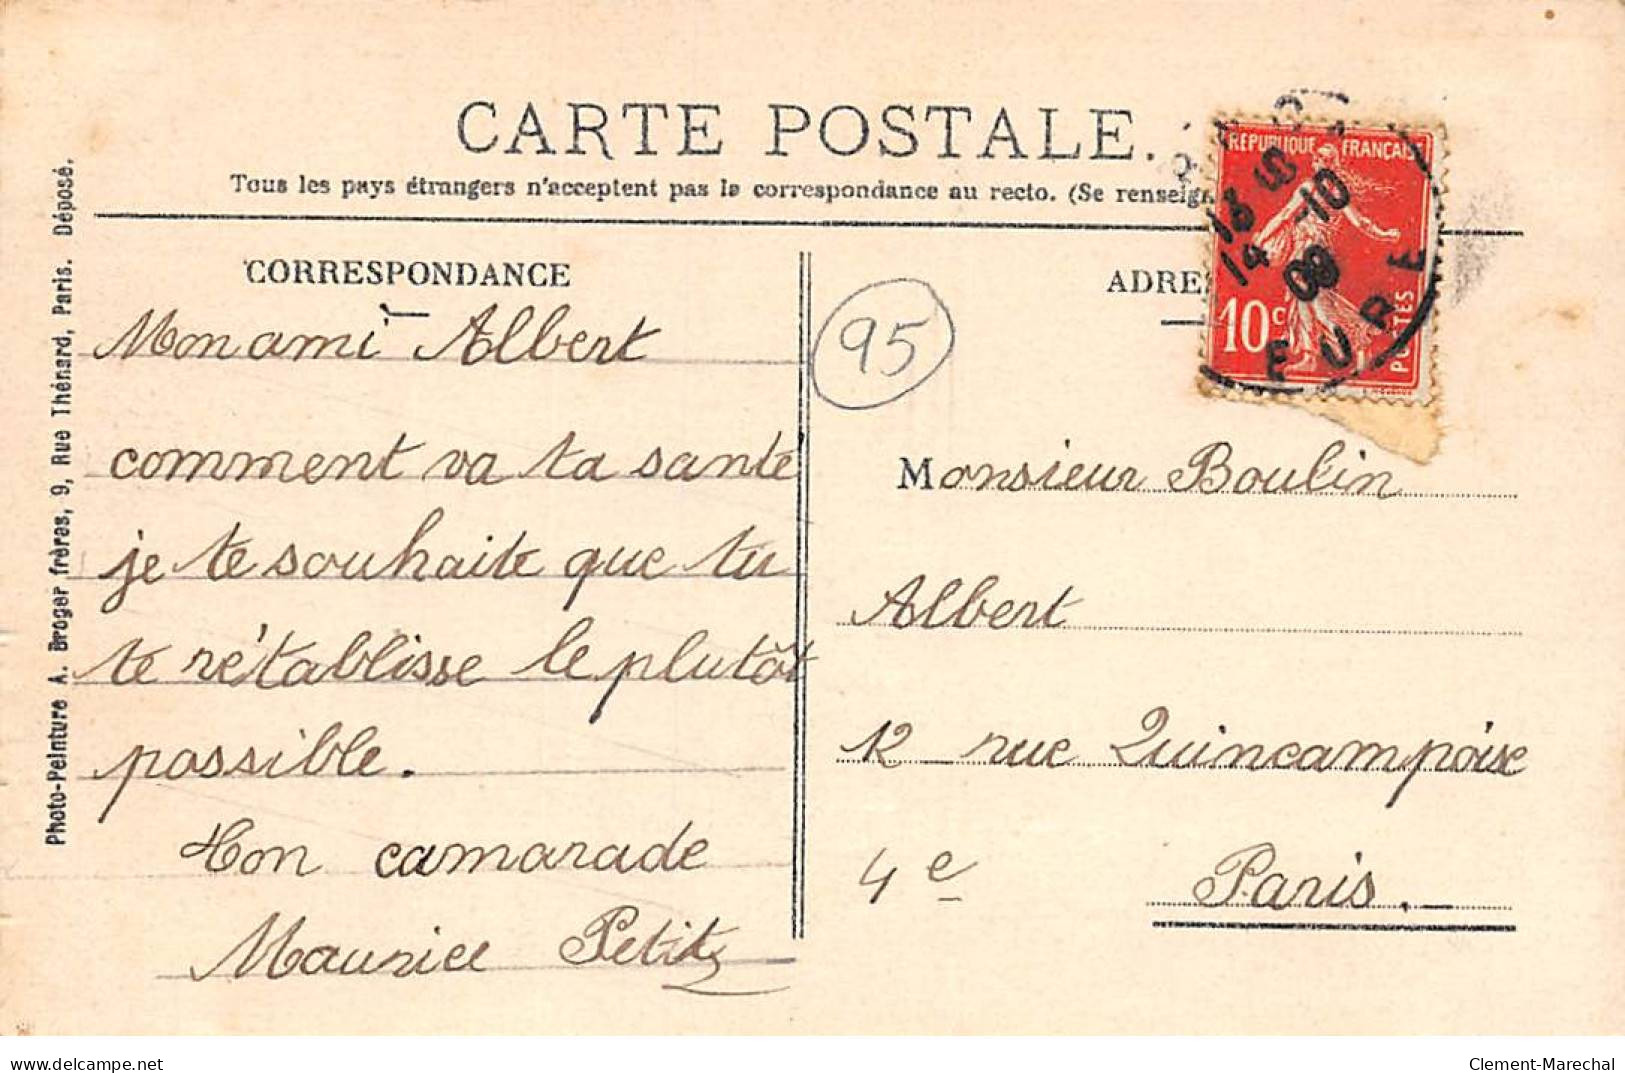 CARTE POSTALE.
Tous les pays étrangers n'acceptent pas la correspondance au recto. (Se renseign
CORRESPONDANCE
Mon ami Albert
comment va ta santé
je te souhaite que tu
te rétablisse le plutôt
possible.
Ton camarade
Maurice Petit
95
ADRE
REPUBLIQUE FRANÇAISE
10c
POSTES
18
14 -10
09
EURE
Monsieur Boulin
Albert
12 rue Quincampoise
4e Paris.
Photo-Peinture A. Broger frères, 9, Rue Thénard, Paris. Déposé.
delcampe.net
Clement-Marechal